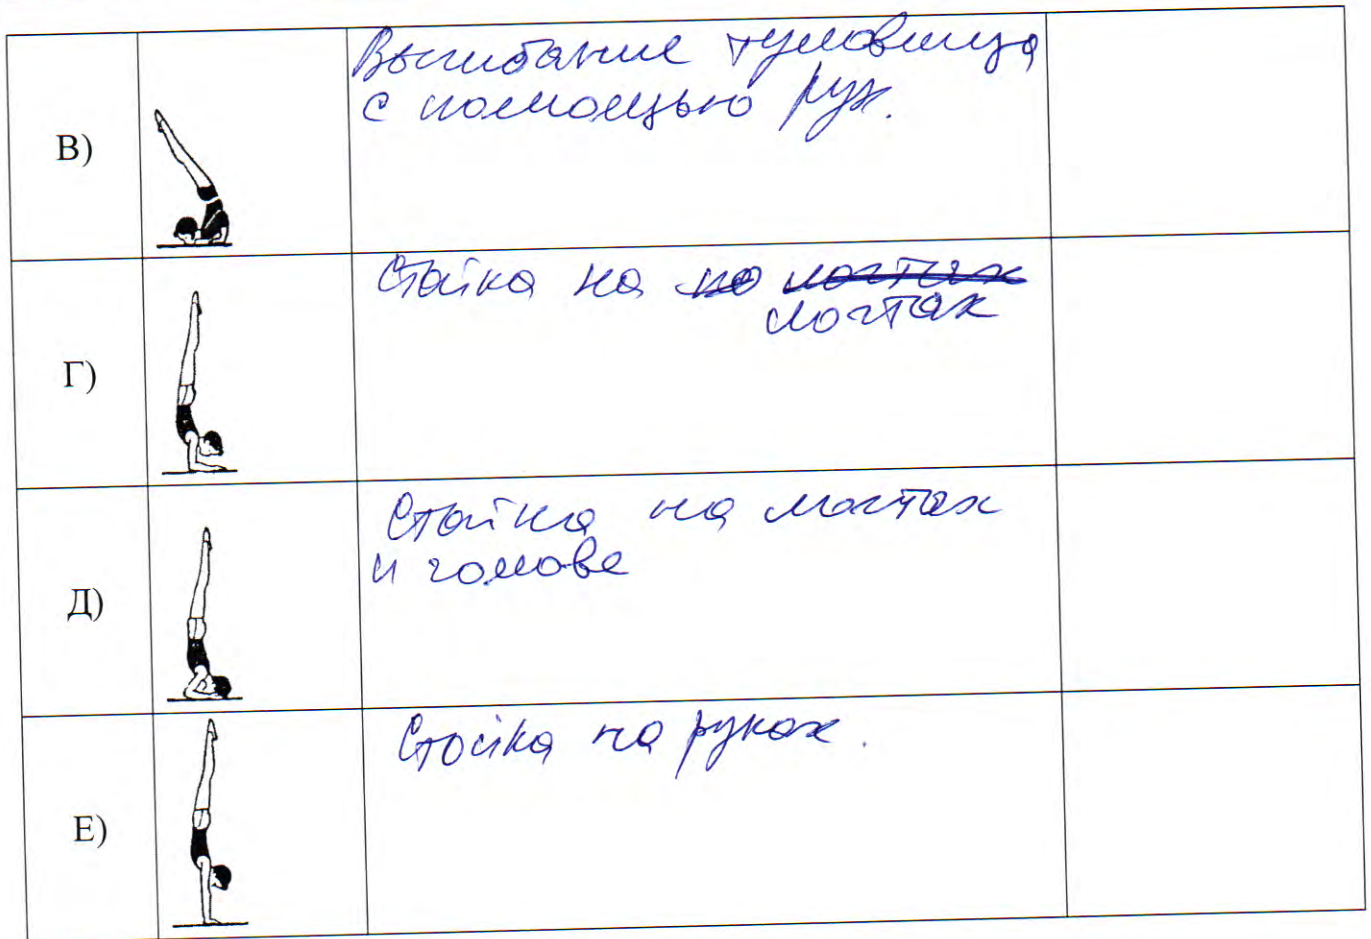 В)
Выгибание туловища
с помощью рук.
Г)
Стойка на но локтях
локтях
Д)
Стойка на локтях
и голове
Е)
Стойка на руках.